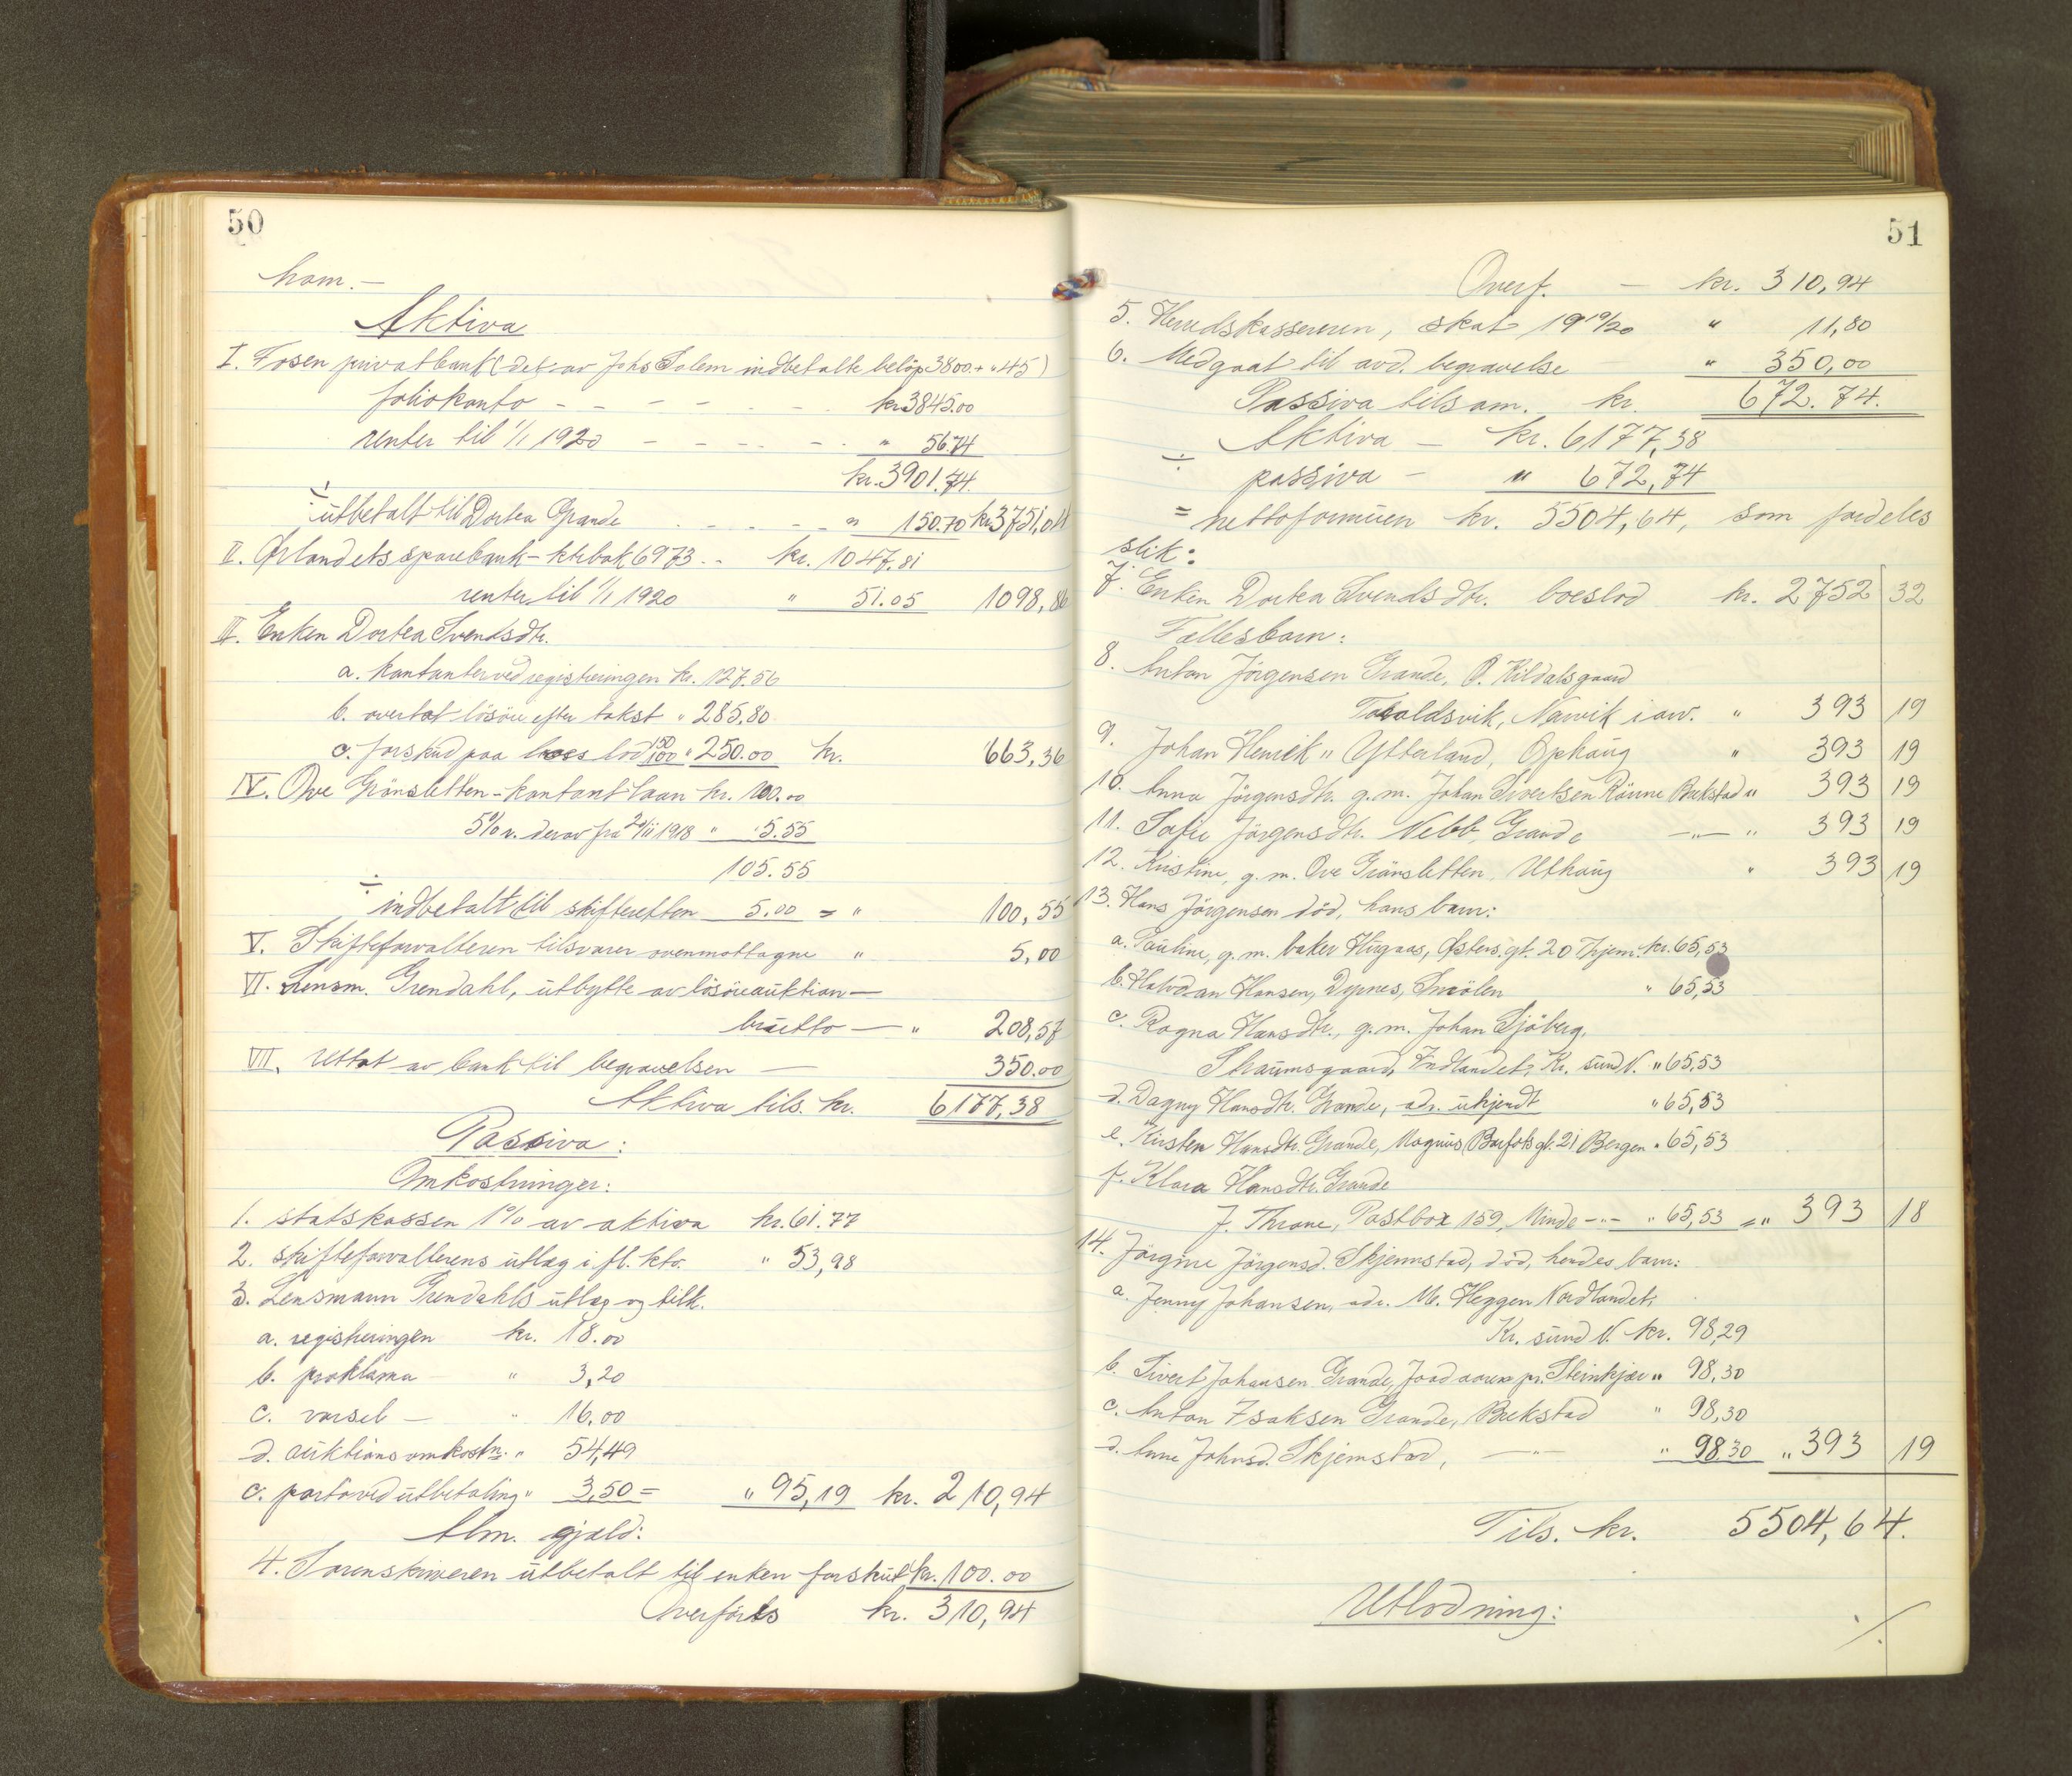 50
ham. —
Aktiva
I. Fosen privatbank (det av Johs Solem indbetalte beløp 3800. + " 45)
foliokonto - - - - - - kr. 3845.00
renter til 1/1 1920 - - - - - " 56.74
kr. 3901.74.
÷ utbetalt til Dortea Grande - - - - " 150.70 kr. 3751,04
II. Ørlandets sparebank - ktrbok 6973 .. kr. 1047.81
renter til 1/1 1920 " 51.05 1098,86
III. Enken Dortea Svendsdtr.
a. kontanter ved registreringen kr. 127.56
b. overtat løsøre efter takst " 285.80
c. forskud paa boeslod 150 100 " 250.00 kr. 663,36
IV. Ove Grönsletten - kontant laan kr. 100.00
5% r. derav fra 20/11 1918 " 5.55
105.55
÷ indbetalt til skifteretten 5.00 = " 100,55
V. Skifteforvalteren tilsvarer ovenmottagne " 5,00
VI. Lensm. Grendahl, utbytte av løsøreauktion —
brutto — " 208,57
VII. Uttat av bank til begravelsen — 350.00
Aktiva tils. kr. 6177,38
Passiva:
Omkostninger:
1. statskassen 1% av aktiva kr. 61.77
2. skifteforvalterens utlæg i fl. kto. " 53,98
3. Lensmann Grendahls utlæg og tilk.
a. registreringen kr. 18.00
b. proklama — " 3,20
c. varsel — " 16,00
d. auktionsomkostn. " 54,49
e. porto ved utbetaling " 3,50 = " 95,19 kr. 210,94
Alm. gjæld:
4. Sorenskriveren utbetalt til enken forskud kr. 100.00
Overføres kr. 310,94
51
Overf. — kr. 310,94
5. Herredskassereren, skat 1919/20 " 11,80
6. Medgaat til avd. begravelse " 350,00
Passiva tilsam. kr. 672.74.
Aktiva — kr. 6177,38
÷ passiva — " 672,74
= nettoformuen kr. 5504,64, som fordeles
slik:
7. Enken Dortea Svendsdtr. boeslod kr. 2752 32
Fællesbarn:
8. Anton Jörgensen Grande, O. Kildalsgaard
Toraldsvik, Narvik i arv. " 393 19
9. Johan Henrik " Ytterland, Ophaug " 393 19
10. Anna Jörgensdtr. g. m. Johan Sivertsen Rönne Bekstad " 393 19
11. Sofie Jörgensdtr. Nebb, Grande —"— " 393 19
12. Kristine, g. m. Ove Grönsletten, Uthaug " 393 19
13. Hans Jörgensen död, hans barn:
a. Pauline, g. m. baker Hugaas, Østers. gt. 20 Thjem. kr. 65,53
b. Halvdan Hansen, Dyrnes, Smölen " 65,53
c. Ragna Hansdtr., g. m. Johan Sjöberg,
Straumsgaard, Indlandet, Kr. sund N. " 65,53
d. Dagny Hansdtr. Grande, adr. ukjendt " 65,53
e. Kirsten Hansdtr. Grande, Magnus Barfots gt. 21 Bergen " 65,53
f. Klara Hansdtr. Grande
J. Throne, Postbox 159, Minde —"— " 65,53 = " 393 18
14. Jörgine Jörgensd. Skjemstad, död, hendes barn:
a. Jenny Johansen, adr. M. Heggen Nordlandet,
Kr. sund N. kr. 98,29
b. Sivert Johansen Grande, pr. Steinkjær " 98,30
c. Anton Isaksen Grande, Bekstad " 98,30
d. Anne Johnsd. Skjemstad, —"— " 98.30 " 393 19
Tils. kr. 5504,64.
Utlodning:
./.